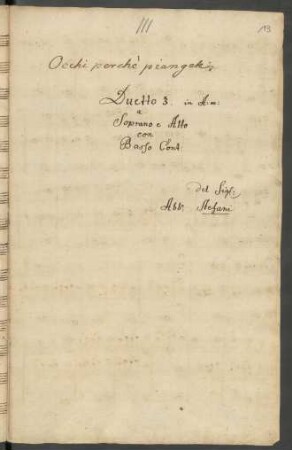 III
Occhi perchè piangete
Duetto 3. in A.m:
a
Soprano e Alto
con
Basso Cont:
del Sigr:
Abb: Stefani